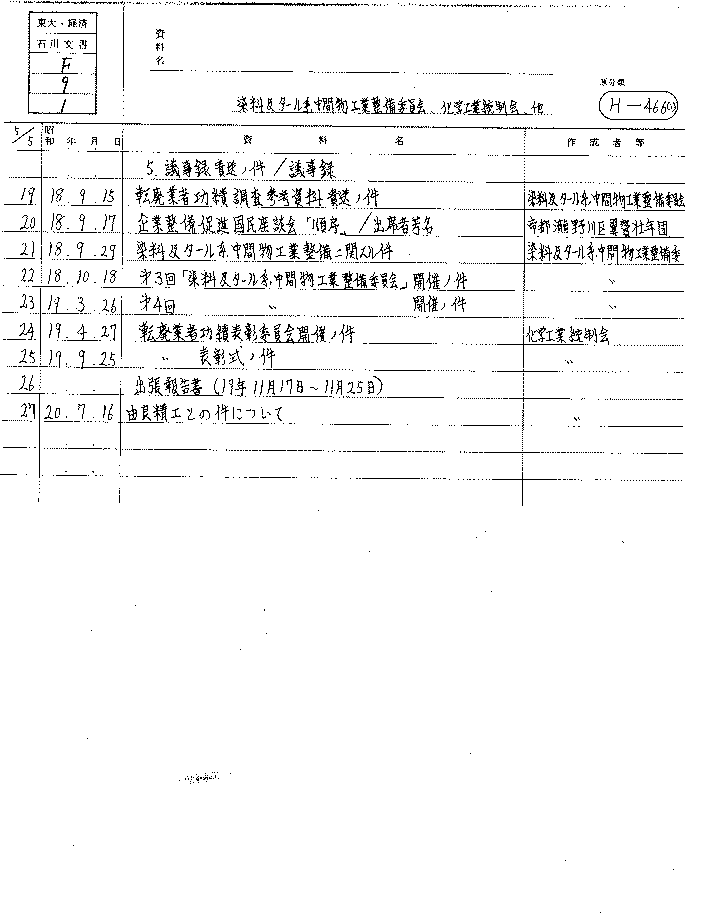 東大・経済
石川文書
F
9
1
資料名
染料及タール系中間物工業整備委員会、化学工業統制会、他
原分類
H-466(3)
5/5 昭和 年 月 日 資料名 作成者等
5. 議事録貴送ノ件/議事録
19 18.9.15 転廃業者功績調査参考資料貴送ノ件 染料及タール系中間物工業整備委員会
20 18.9.17 企業整備促進国民座談会「順序」/出席者芳名 帝都瀧野川区翼賛壮年団
21 18.9.29 染料及タール系中間物工業整備ニ関スル件 染料及タール系中間物工業整備委
22 18.10.18 第3回「染料及タール系中間物工業整備委員会」開催ノ件 〃
23 19.3.26 第4回 〃 開催ノ件
24 19.4.27 転廃業者功績表彰委員会開催ノ件 化学工業統制会
25 19.9.25 〃 表彰式ノ件 〃
26 . . 出張報告書(19年11月17日~11月25日)
27 20.7.16 由良精工との件について 〃